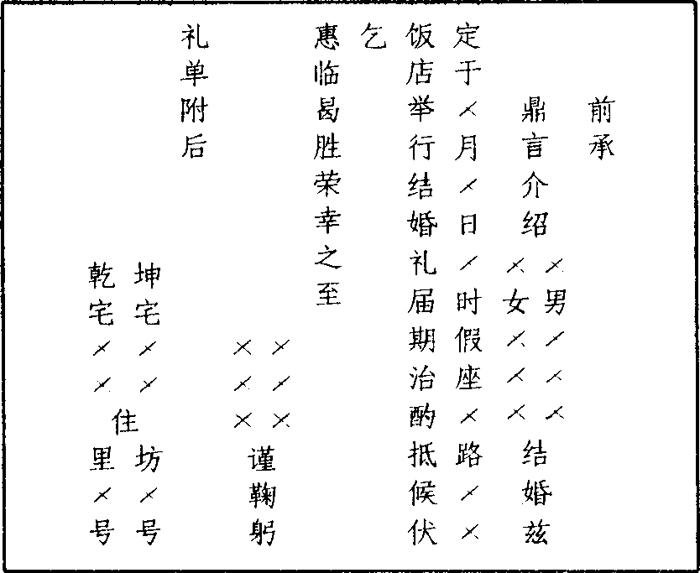 前承
鼎言介绍
×男×××
×女×××
结婚兹
定于×月×日×时假座×路××
饭店举行结婚礼届期治酌抵候伏
乞
惠临曷胜荣幸之至
×××
×××
谨鞠躬
礼单附后
坤宅××
乾宅××
住
坊×号
里×号